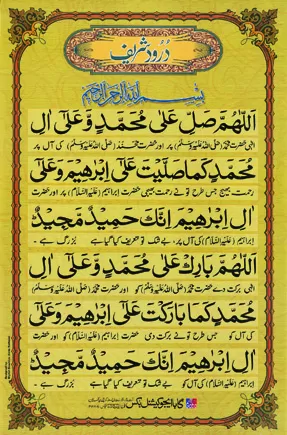 درود شریف
بسم الله الرحمن الرحیم
اَللّٰهُمَّ صَلِّ عَلٰى مُحَمَّدٍ وَّعَلٰٓى اٰلِ
الٰہی حضرت محمد (صلی اللہ علیہ وسلم) پر اور حضرت محمد (صلی اللہ علیہ وسلم) کی آل پر
مُحَمَّدٍ كَمَا صَلَّيْتَ عَلٰٓى اِبْرٰهِيْمَ وَعَلٰٓى
رحمت بھیج جس طرح تو نے رحمت بھیجی حضرت ابراہیم (علیہ السلام) پر اور حضرت
اٰلِ اِبْرٰهِيْمَ اِنَّكَ حَمِيْدٌ مَّجِيْدٌ
ابراہیم (علیہ السلام) کی آل پر، بے شک تو تعریف کیا گیا ہے بزرگ ہے -
اَللّٰهُمَّ بَارِكْ عَلٰى مُحَمَّدٍ وَّعَلٰٓى اٰلِ
الٰہی برکت دے حضرت محمد (صلی اللہ علیہ وسلم) کو اور حضرت محمد (صلی اللہ علیہ وسلم)
مُحَمَّدٍ كَمَا بَارَكْتَ عَلٰٓى اِبْرٰهِيْمَ وَعَلٰٓى
کی آل کو جس طرح تو نے برکت دی حضرت ابراہیم (علیہ السلام) کو اور حضرت
اٰلِ اِبْرٰهِيْمَ اِنَّكَ حَمِيْدٌ مَّجِيْدٌ
ابراہیم (علیہ السلام) کی آل کو بے شک تو تعریف کیا گیا ہے بزرگ ہے -
گابا ایجوکیشنل بکس